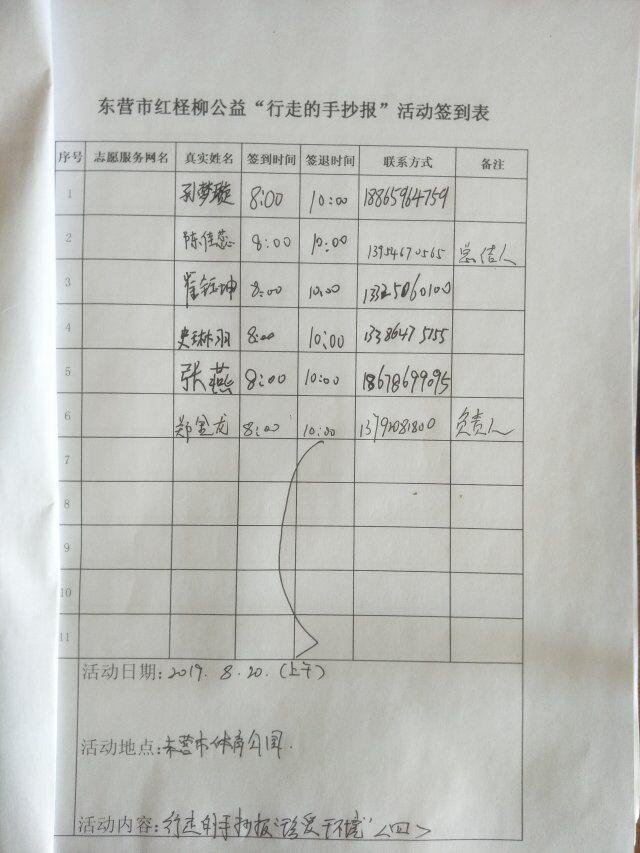 东营市红柽柳公益“行走的手抄报”活动签到表
序号 志愿服务网名 真实姓名 签到时间 签退时间 联系方式 备注
1 孙梦璇 8:00 10:00 18865964759
2 陈佳蕊 8:00 10:00 13954670565 总结人
3 崔钰坤 8:00 10:00 13325060100
4 史琳羽 8:00 10:00
5 张燕 8:00 10:00 18678699095
6 郑金龙 8:00 10:00 负责人
7
8
9
10
11
活动日期:2019.8.20.(上午)
活动地点:东营市体育公园.
活动内容:行走的手抄报“珍爱环境”<四>